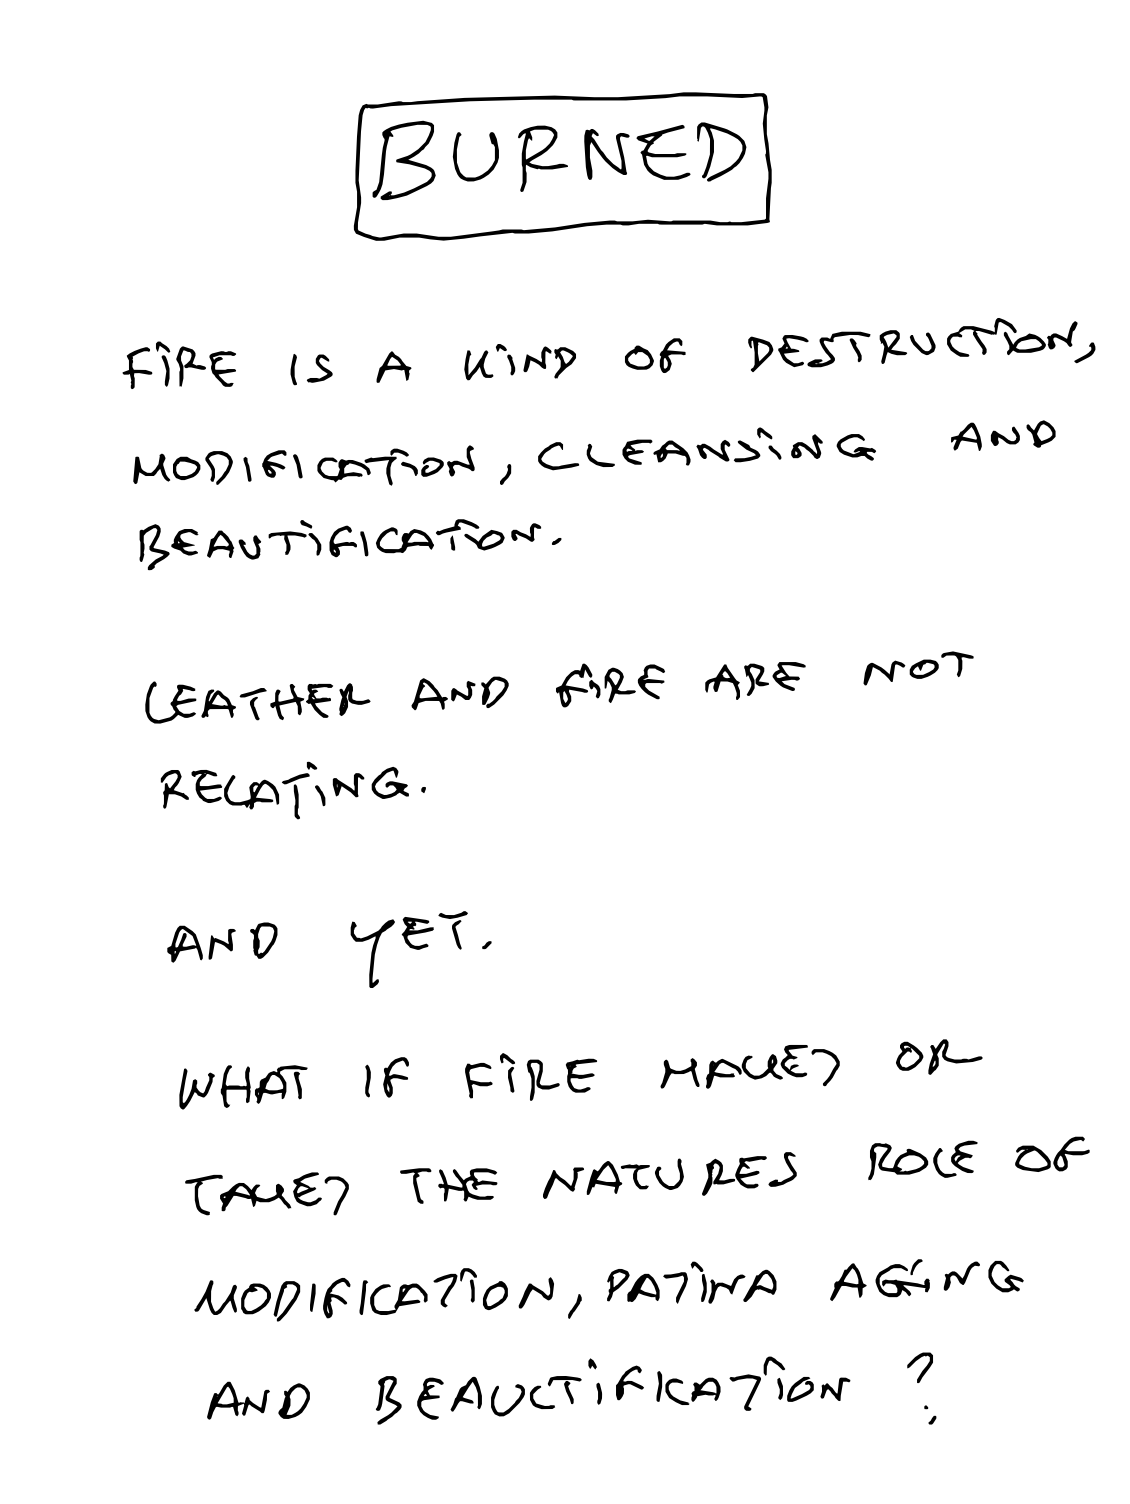 BURNED
FIRE IS A KIND OF DESTRUCTION,
MODIFICATION, CLEANSING AND
BEAUTIFICATION.
LEATHER AND FIRE ARE NOT
RELATING.
AND YET.
WHAT IF FIRE MAKES OR
TAKES THE NATURES ROLE OF
MODIFICATION, PATINA AGING
AND BEAUCTIFICATION?